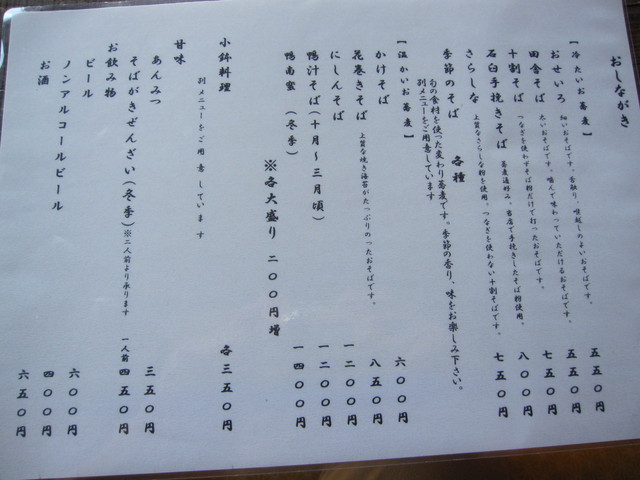 おしながき
【冷たいお蕎麦】
おせいろ 細いおそばです。歯触り、喉越しのよいおそばです。 五五〇円
田舎そば 太いおそばです。噛んで味わっていただけるおそばです。 五五〇円
十割そば つなぎを使わずそば粉だけで打ったおそばです。 七五〇円
石臼手挽きそば 蕎麦通好み。当店で手挽きしたそば粉使用。 八〇〇円
さらしな 上質なさらしな粉を使用。つなぎを使わない十割そばです。 七五〇円
季節のそば 各種
旬の食材を使った変わり蕎麦です。季節の香り、味をお楽しみ下さい。
別メニューをご用意しています
【温かいお蕎麦】
かけそば 六〇〇円
花巻きそば 上質な焼き海苔がたっぷりのったおそばです。 八五〇円
にしんそば 一二〇〇円
鴨汁そば(十月～三月頃) 一二〇〇円
鴨南蛮 (冬季) 一四〇〇円
※各大盛り 二〇〇円増
小鉢料理 各三五〇円
別メニューをご用意しています
甘味
あんみつ 三五〇円
そばがきぜんざい(冬季)※二人前より承ります 一人前 四五〇円
お飲み物
ビール 六〇〇円
ノンアルコールビール 四〇〇円
お酒 六五〇円